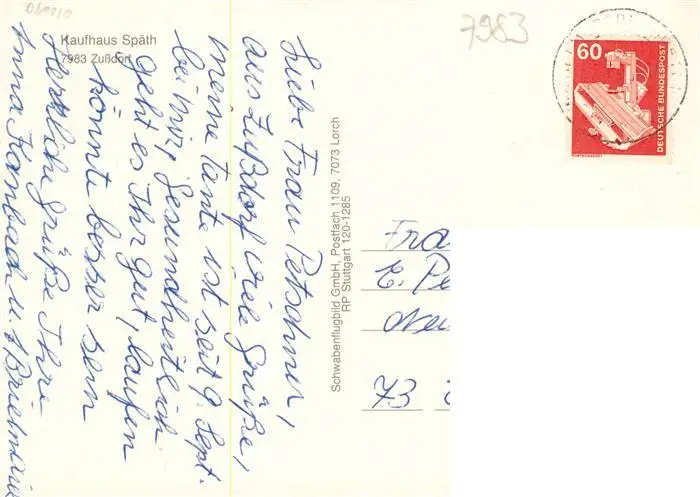 061110
Kaufhaus Späth
7983 Zußdorf
7983
60
DEUTSCHE BUNDESPOST
Liebe Frau Petschner,
aus Zußdorf viele Grüße,
meine Tante ist seit 9. Sept.
bei mir, gesundheitlich
geht es Ihr gut, laufen
könnte besser sein
Herzliche Grüße Ihre
Anna Kanbach u.
Schwabenflugbild GmbH, Postfach 1109, 7073 Lorch
RP Stuttgart 120-1285
Fra
E. Pe
73